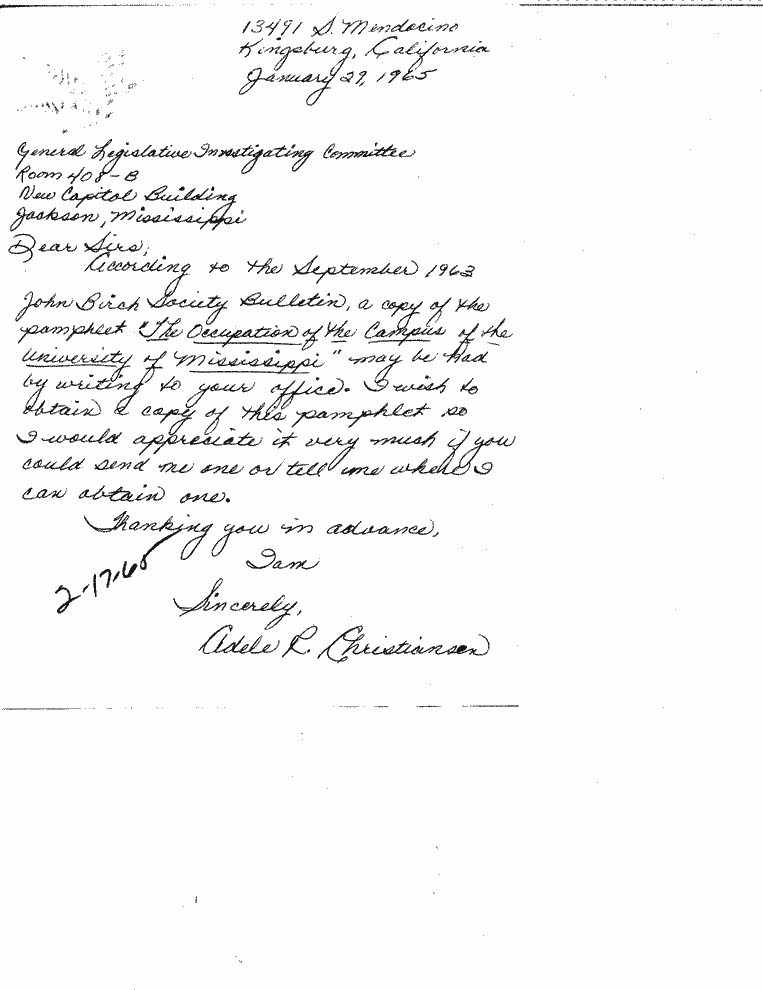 13491 S. Mendocino
Kingsburg, California
January 29, 1965
General Legislative Investigating Committee
Room 408-B
New Capitol Building
Jackson, Mississippi
Dear Sirs;
According to the September 1963
John Birch Society Bulletin, a copy of the
pamphlet "The Occupation of the Campus of the
University of Mississippi" may be had
by writing to your office. I wish to
obtain a copy of this pamphlet so
I would appreciate it very much if you
could send me one or tell me where I
can obtain one.
Thanking you in advance,
I am
2-17-65
Sincerely,
Adele R. Christiansen